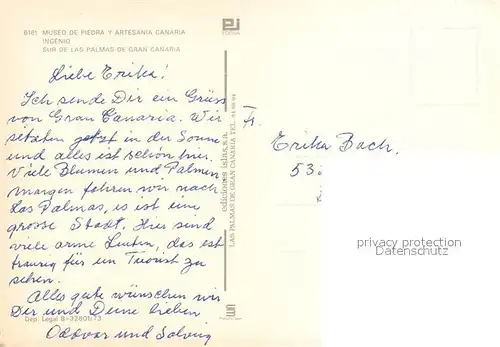 6161 MUSEO DE PIEDRA Y ARTESANIA CANARIA
INGENIO
SUR DE LAS PALMAS DE GRAN CANARIA
Liebe Erika!
Ich sende Dir ein Grüss
von Gran Canaria. Wir
sitzten jetzt in der Sonne
und alles ist schön hir.
Viele Blumen und Palmen
morgen fahren wir nach
Las Palmas, es ist eine
grosse Stadt. Hier sind
viele arme Leuten, das ist
traurig für ein Tuorist zu
sehen.
Alles gute wünschen wir
Dir und Deine lieben
und Solveig
Dep. Legal B-32801/73
ediciones islas, s.a.
LAS PALMAS DE GRAN CANARIA TEL.
Fr.
Erika Bach.
53
privacy protection
Datenschutz